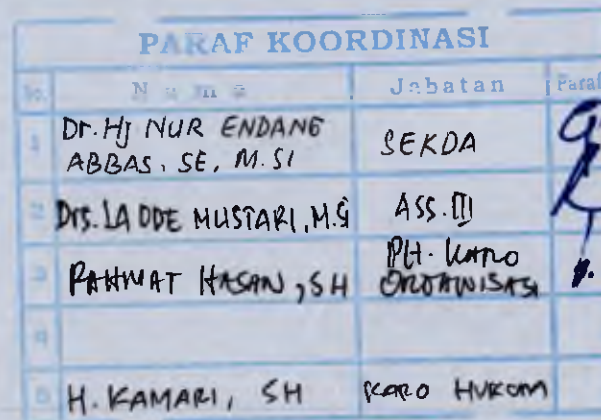 PARAF KOORDINASI
No. Nama Jabatan Paraf
1 Dr. Hj NUR ENDANG SEKDA
ABBAS, SE, M.SI
2 Drs. LA ODE MUSTARI, M.Si ASS. III
3 RAHMAT HASAN, SH Plt. KARO
ORGANISASI
4
5 H. KAMARI, SH KARO HUKUM